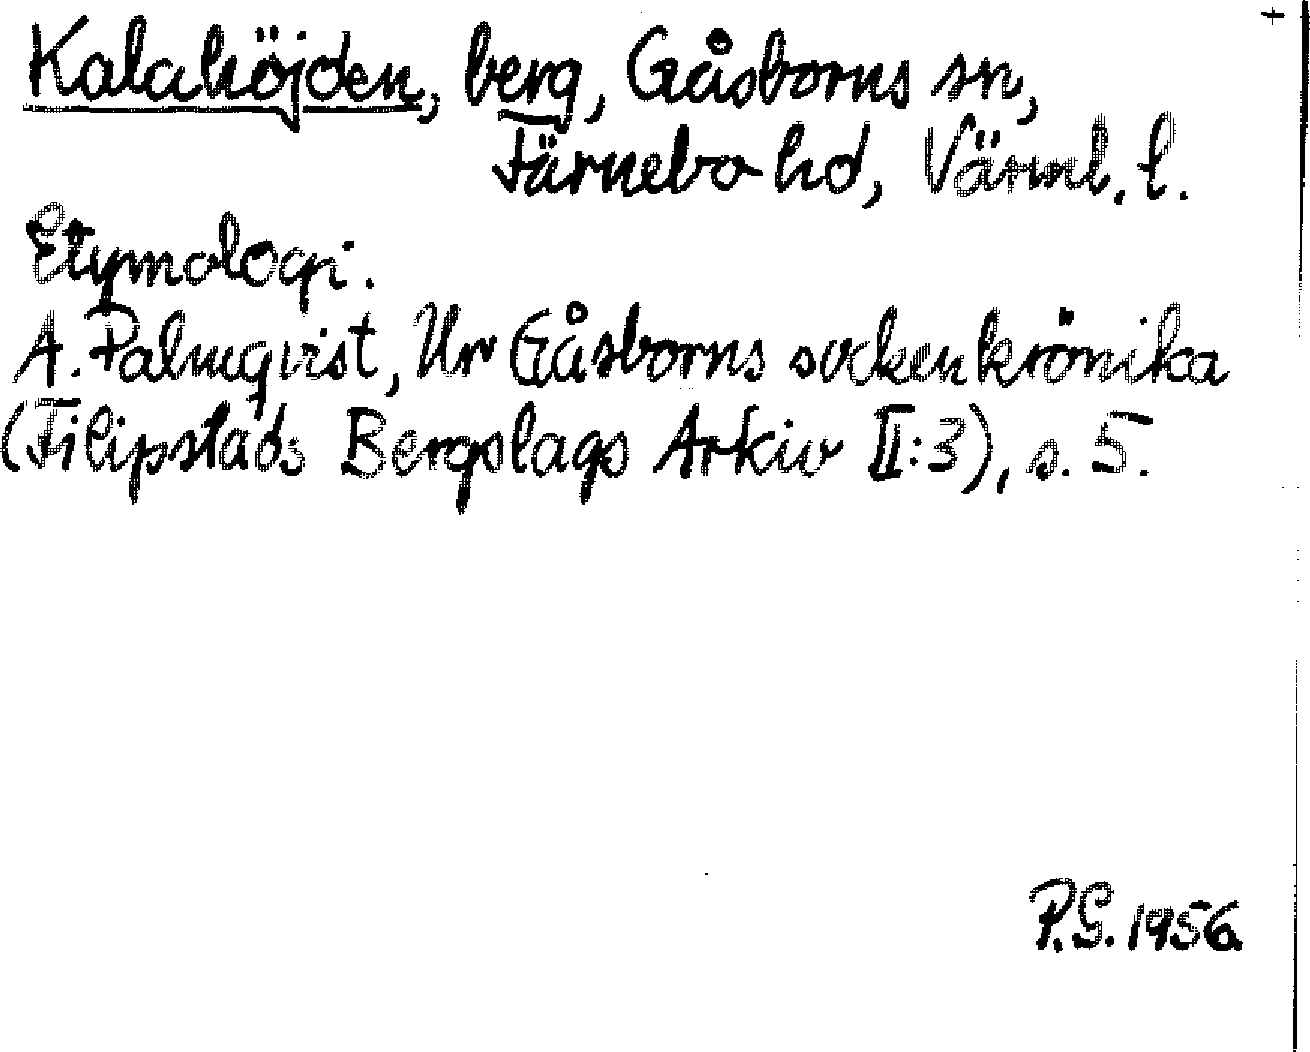 Kalahöjden, berg, Gåsborns sn,
Färnebo hd, Värml. l.
Etymologi.
A. Palmqvist, Ur Gåsborns sockenkrönika
(Filipstads Bergslags Arkiv II:3), s. 5.
P.G. 1956.